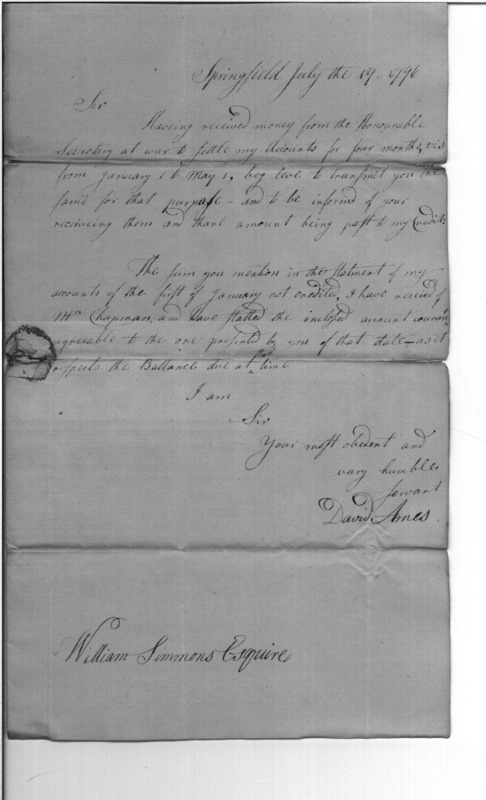 Springfield July the 19 1796
Sir
Haveing received money from the Honourable
Secretary at war to settle my Accounts for four months, vis
from January 1 to May 1, beg leve to transmit you the
same for that purpose – and to be informd of your
receiveing them and thare amount being past to my Credit
The sum you mention in the Statment of my
accounts of the first of January not credited, I have received of
Mr Chapman, and have stated the inclosed account currant
agreeable to the one presented by you of that date – as it
respects the Ballance due at that time
I am
Sir
Your most obedent and
vary humble
servant
David Ames
William Simmons Esquire